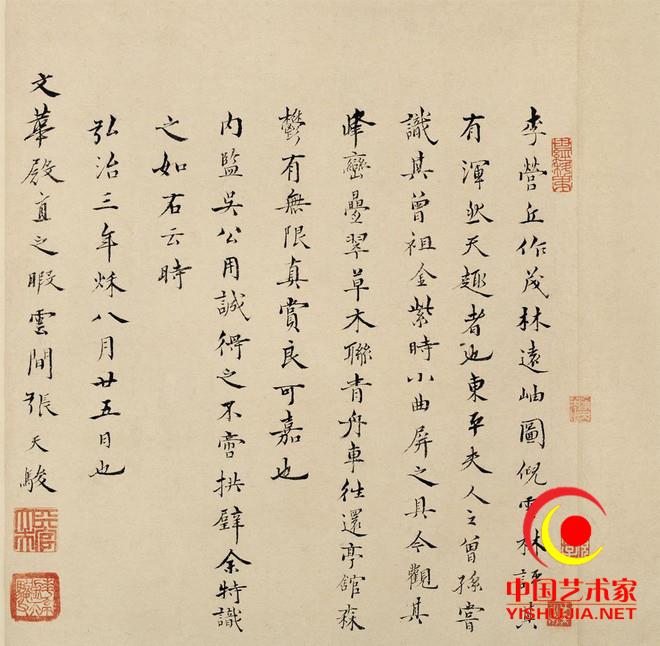 李營丘作茂林遠岫圖倪雲林評其
有渾然天趣者也東平夫人之曾孫嘗
識其曾祖金紫時小曲屏之具今觀其
峰巒疊翠草木聯青舟車往還亭舘森
鬱有無限真賞良可嘉也
內監吳公用誠得之不啻拱璧余特識
之如右云時
弘治三年秋八月廿五日也
文華殿直之暇雲間張天駿
中国艺术家
YISHUJIA.NET